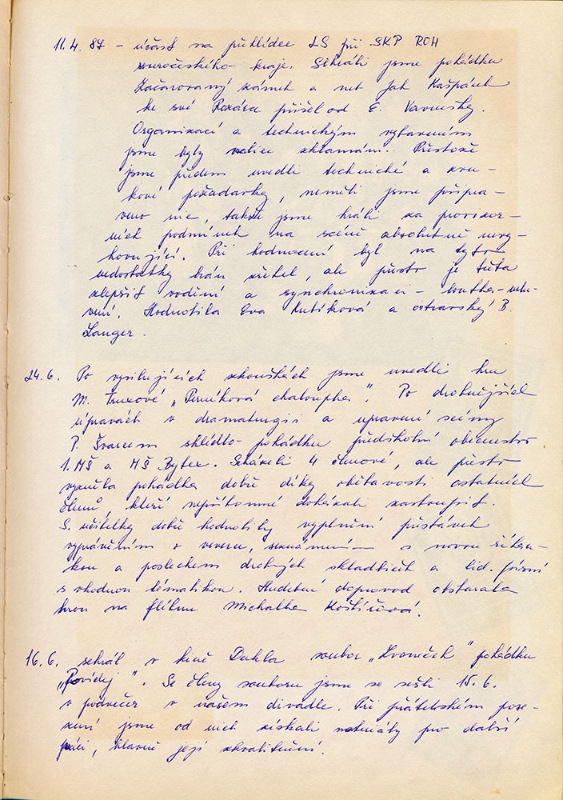 11.4.87 – účast na přehlídce LS při SKP ROH
severočeského kraje. Sehráli jsme pohádku
Začarovaný zámek a net Jak Kašpárek
ke své Rozárce přišel od E. Vavrušky.
Organizací a technickým vybavením
jsme byly velice zklamáni. Přestože
jsme předem uvedli technické a zvu-
kové požadavky, neměli jsme připra-
veno nic, takže jsme hráli za provizor-
ních podmínek na scéně absolutně nevy-
hovující. Při hodnocení byl na tyto
nedostatky brán zřetel, ale přesto je třeba
zlepšit vodění a synchronizaci – loutka-mlu-
vení. Hodnotila Eva Kubíková a ostravský B.
Langer.
24.6. Po vysilujících zkouškách jsme uvedli hru
M. Truxové „Perníková chaloupka". Po drobnějších
úpravách v dramaturgii a upravení scény
P. Švarcem shlédlo pohádku předškolní obecenstvo
1. MŠ a MŠ Bytex. Scházeli 4 členové, ale přesto
vyzněla pohádka dobře díky obětavosti ostatních
členů, kteří nepřítomné dokázali zastoupit.
S. učitelky dobře hodnotily vyplnění přestávek
vyprávěním o veveru, seznámení – s novou říkan-
kou a poslechem drobných skladbiček a lid. písní
s vhodnou tématikou. Hudební doprovod obstarala
hrou na flétnu Michalka Košířová.
16.6. sehrál v kině Dukla soubor „Zvoneček" pohádku
„Povídej". Se členy souboru jsme se sešli 15.6.
v podvečer v našem divadle. Při přátelském pose-
zení jsme od nich získali náměty pro další
práci, hlavně její zkvalitnění.